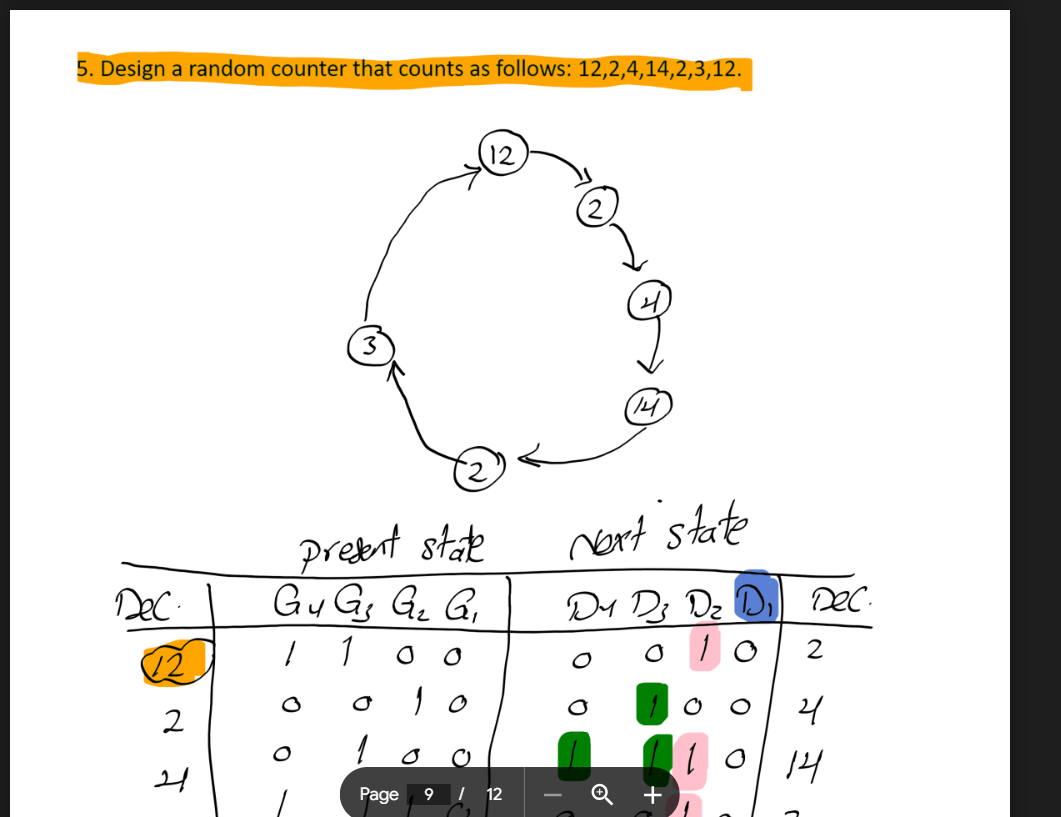 5. Design a random counter that counts as follows: 12,2,4,14,2,3,12.
12
2
4
3
14
2
Present state Next state
Dec. G4 G3 G2 G1 D4 D3 D2 D1 Dec.
12 1 1 0 0 0 0 1 0 2
2 0 0 1 0 0 1 0 0 4
4 0 1 0 0 1 1 1 0 14
Page 9 / 12